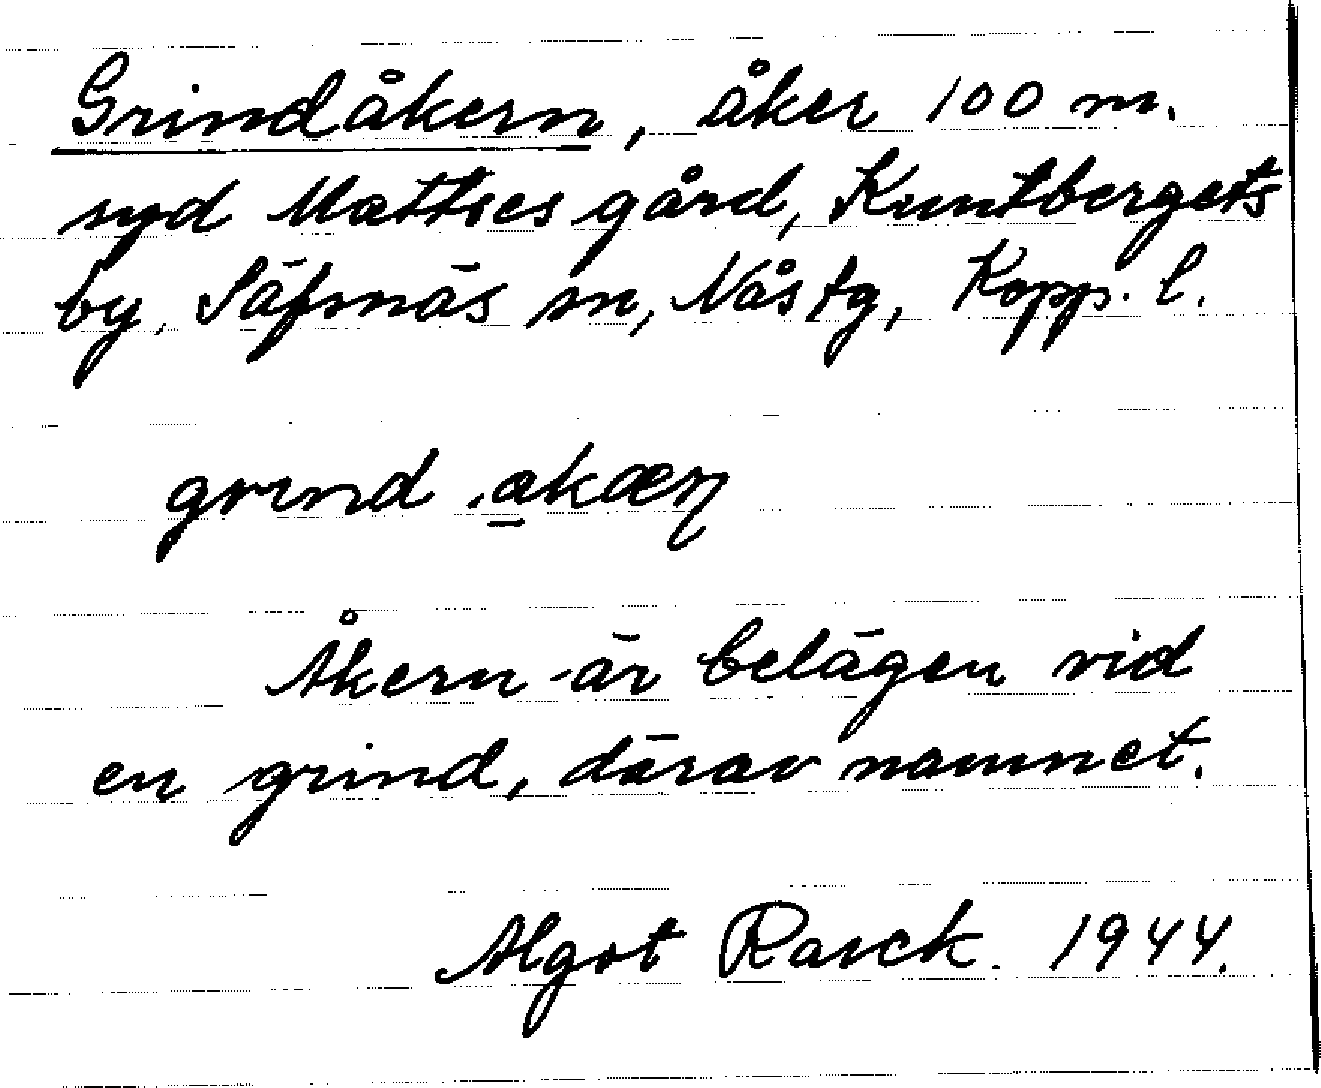 Grindåkern, åker 100 m.
syd Mattses gård, Kuntbergets
by, Säfsnäs sn, Nås tg, Kopp. l.
grind .a̲kæɳ
Åkern är belägen vid
en grind, därav namnet.
Algot Rasck. 1944.